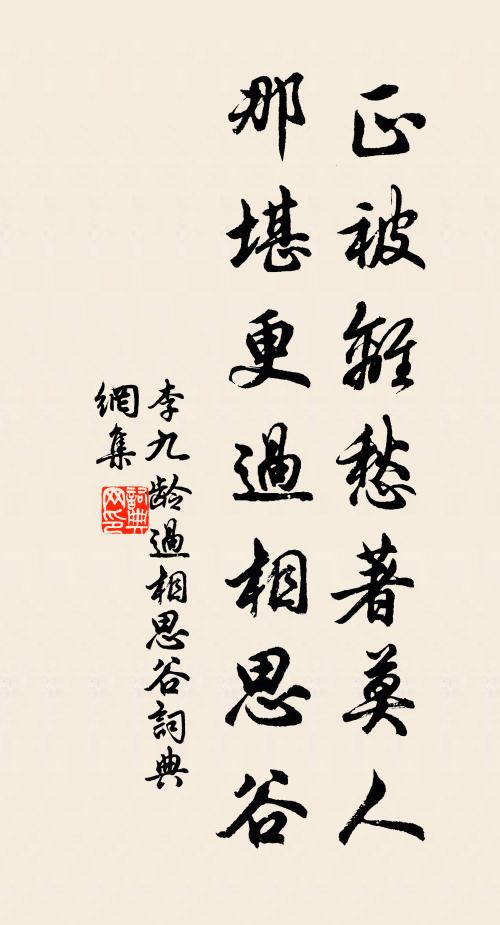 正被離愁著莫人
那堪更過相思谷
李九龄過相思谷詞典
網集
詞典
网印